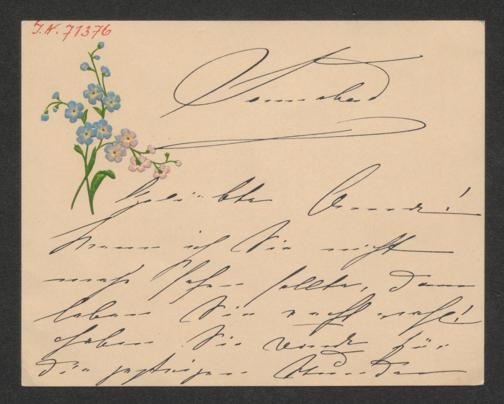 I.N. 71376
Sonnabend
Geliebte Anna!
Wenn ich Sie nicht
mehr sehen sollte, dann
leben Sie recht wohl!
haben Sie Dank für
die gestrigen Stunden